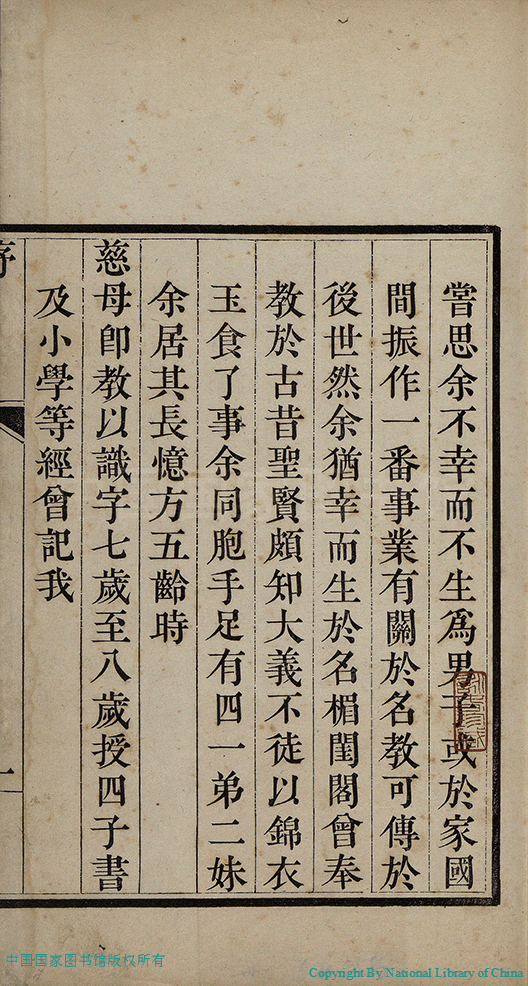 嘗思余不幸而不生爲男子或於家國
間振作一番事業有關於名教可傳於
後世然余猶幸而生於名楣閨閣曾奉
教於古昔聖賢頗知大義不徒以錦衣
玉食了事余同胞手足有四一弟二妹
余居其長憶方五齡時
慈母卽教以識字七歲至八歲授四子書
及小學等經曾記我
序
一
中国国家图书馆版权所有
Copyright By National Library of China